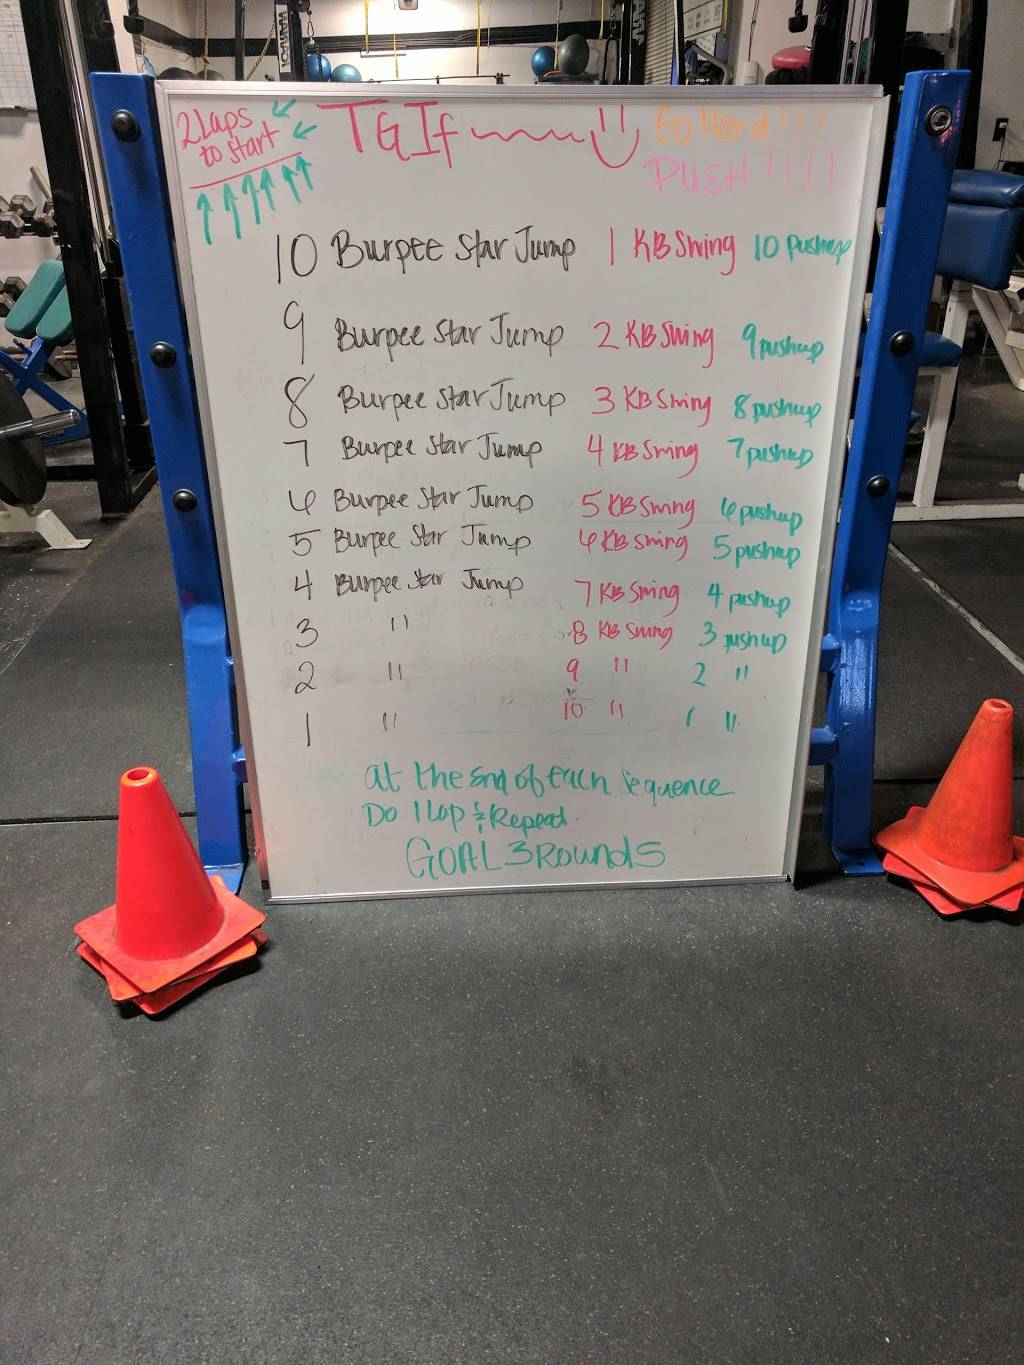 2 Laps to start
TGIf
Go Hard!!!
PUSH!!!!
10 Burpee Star Jump 1 KB Swing 10 pushup
9 Burpee Star Jump 2 KB Swing 9 pushup
8 Burpee Star Jump 3 KB Swing 8 pushup
7 Burpee Star Jump 4 KB Swing 7 pushup
6 Burpee Star Jump 5 KB Swing 6 pushup
5 Burpee Star Jump 6 KB Swing 5 pushup
4 Burpee Star Jump 7 KB Swing 4 pushup
3 " 8 KB Swing 3 pushup
2 " 9 " 2 "
1 " 10 " 1 "
at the end of each sequence
Do 1 Lap & Repeat.
GOAL 3 Rounds